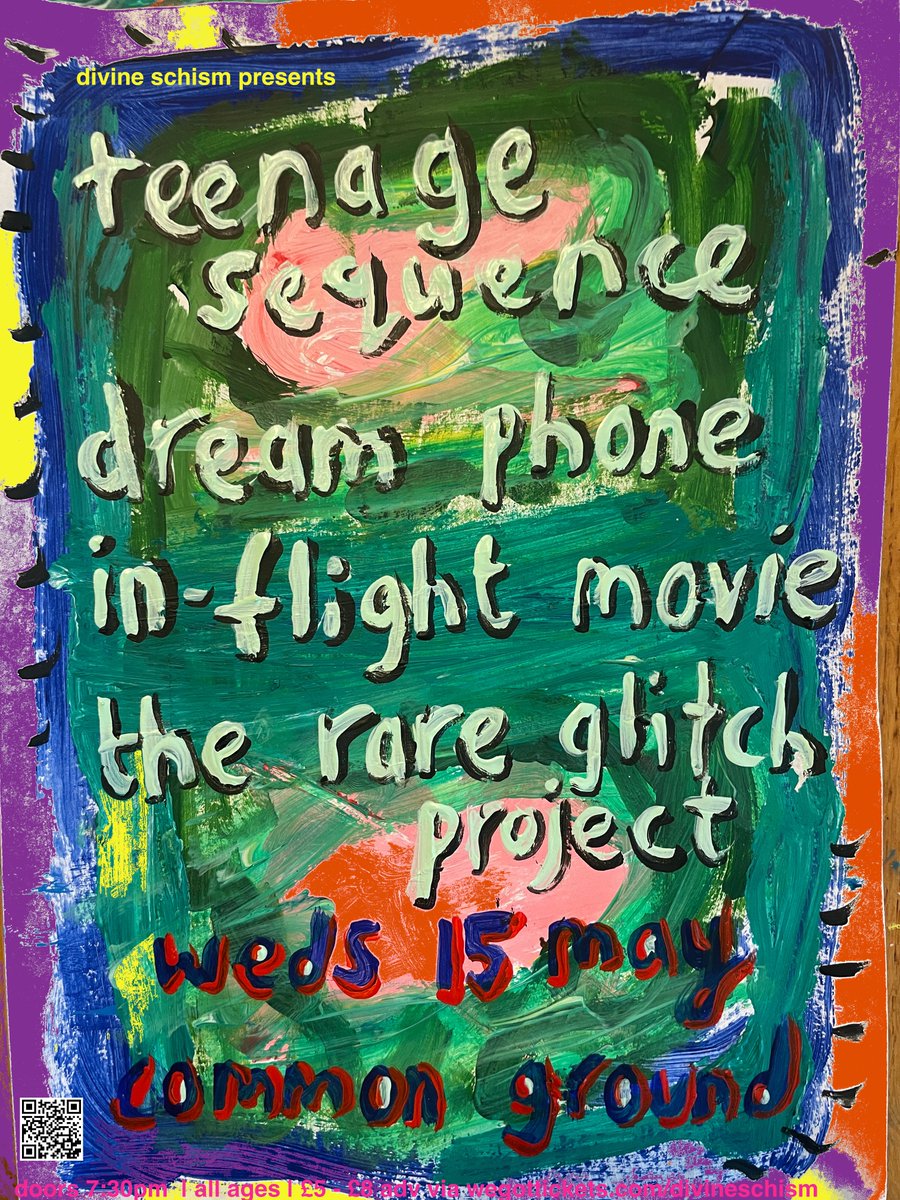 divine schism presents
teenage
sequence
dream phone
in-flight movie
the rare glitch
project
weds 15 may
common ground
doors 7:30pm | all ages | £5 - £8 adv via wegottickets.com/divineschism